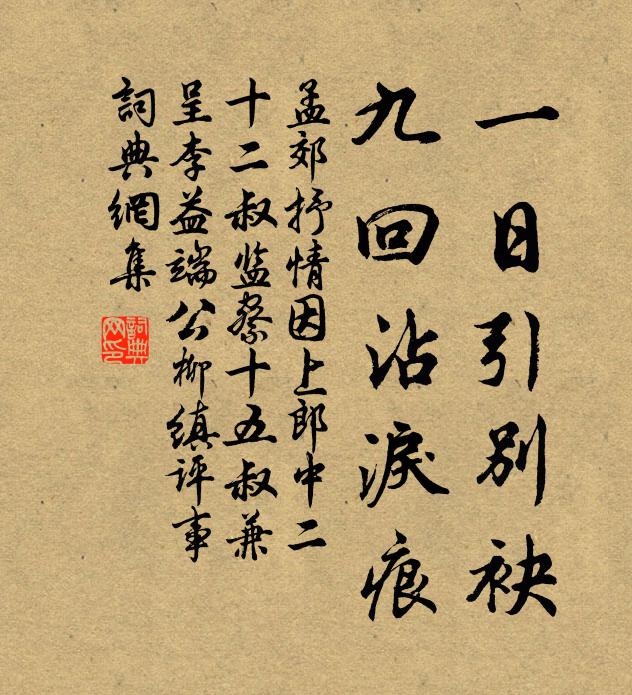 一日引別袂
九回沾淚痕
孟郊抒情因上郎中二
十二叔监察十五叔兼
呈李益端公柳縝評事
詞典網集
詞典网印